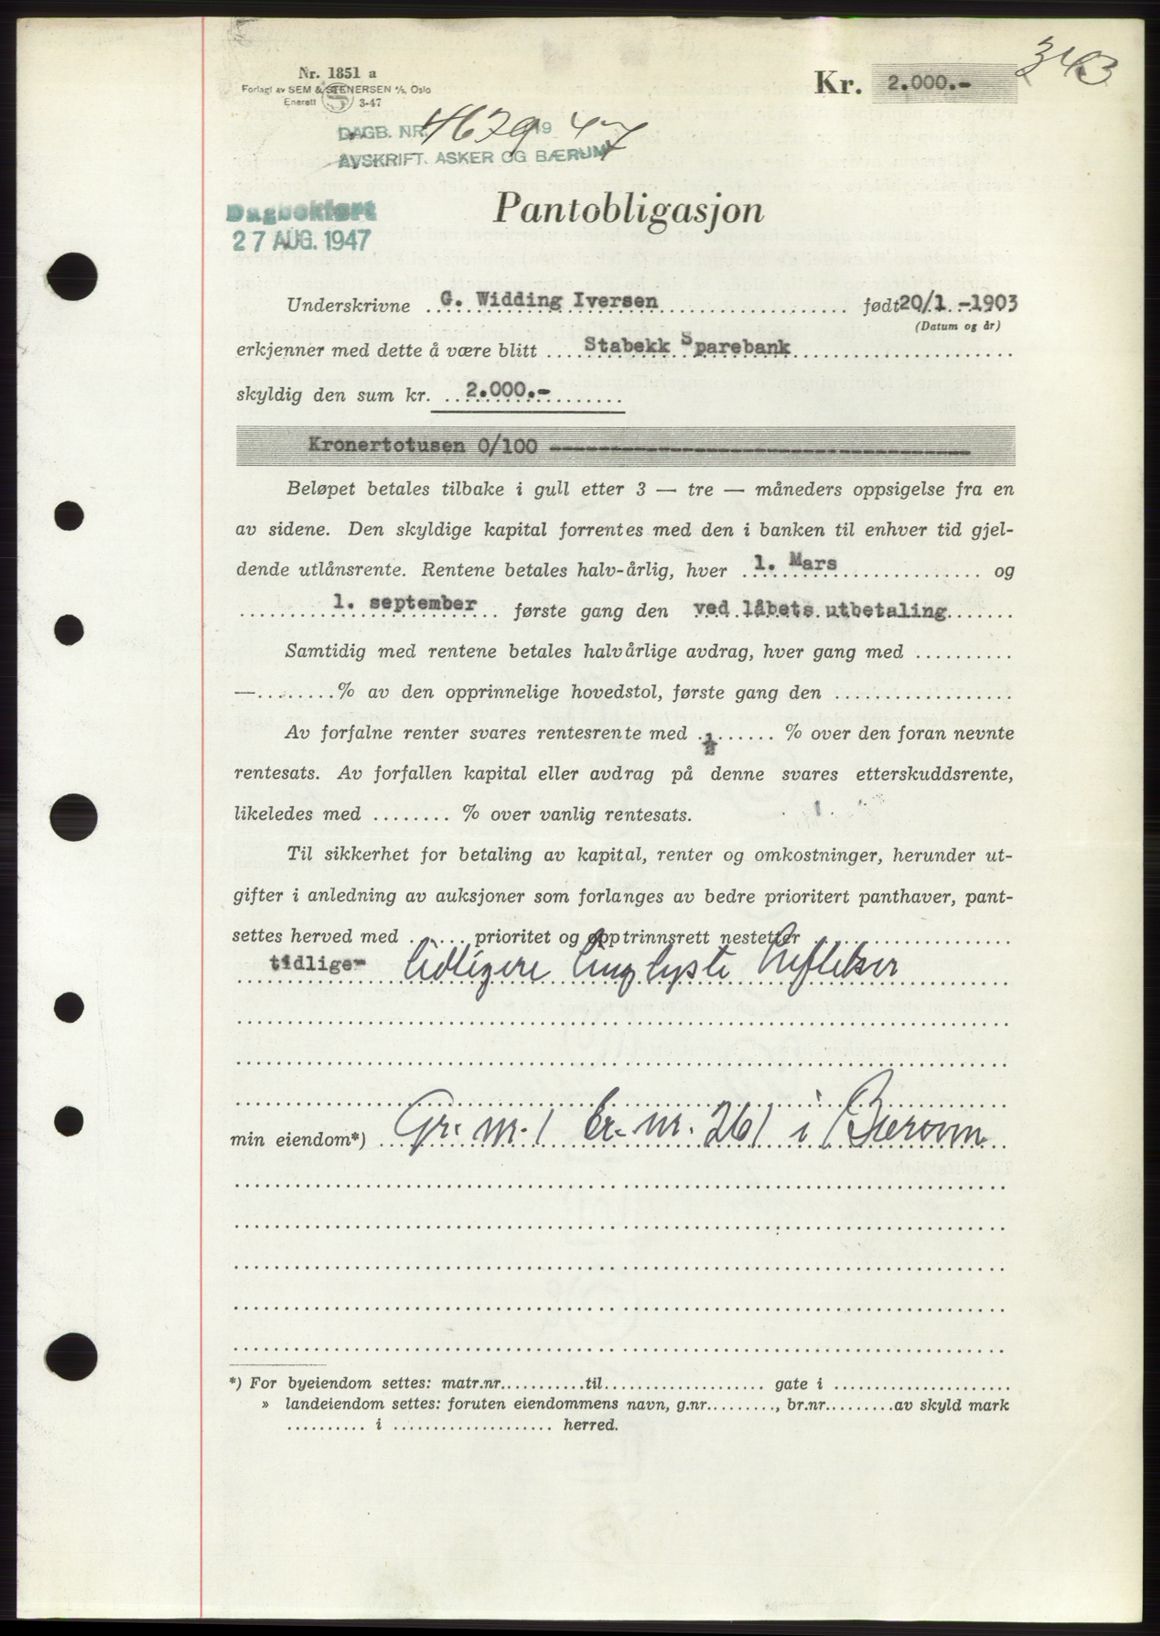 343
Nr. 1851 a
Forlagt av SEM & STENERSEN A/S, Oslo
Enerett S 3-47
Kr. 2.000.-
DAGB. NR. 4679 19 47
AVSKRIFT. ASKER OG BÆRUM
Dagbokført
27 AUG. 1947
Pantobligasjon
Underskrivne G. Widding Iversen født 20/1 -1903
(Datum og år)
erkjenner med dette å være blitt Stabekk Sparebank
skyldig den sum kr. 2.000.-
Kronertotusen 0/100 ---
Beløpet betales tilbake i gull etter 3 — tre — måneders oppsigelse fra en
av sidene. Den skyldige kapital forrentes med den i banken til enhver tid gjel-
dende utlånsrente. Rentene betales halv-årlig, hver 1. Mars og
1. september første gang den ved låbets utbetaling
Samtidig med rentene betales halvårlige avdrag, hver gang med ..........
—........% av den opprinnelige hovedstol, første gang den ..................
Av forfalne renter svares rentesrente med 1/2 % over den foran nevnte
rentesats. Av forfallen kapital eller avdrag på denne svares etterskuddsrente,
likeledes med ........ % over vanlig rentesats. 1.
Til sikkerhet for betaling av kapital, renter og omkostninger, herunder ut-
gifter i anledning av auksjoner som forlanges av bedre prioritert panthaver, pant-
settes herved med ...... prioritet og opptrinnsrett nestetter ....................
tidlige- tidligere tinglyste heftelser
min eiendom*) Gr. nr. 1 br. nr. 261 i Bærum
*) For byeiendom settes: matr.nr...........til..................... gate i .......................
» landeiendom settes: foruten eiendommens navn, g.nr........., br.nr.........av skyld mark
.......... i .................... herred.